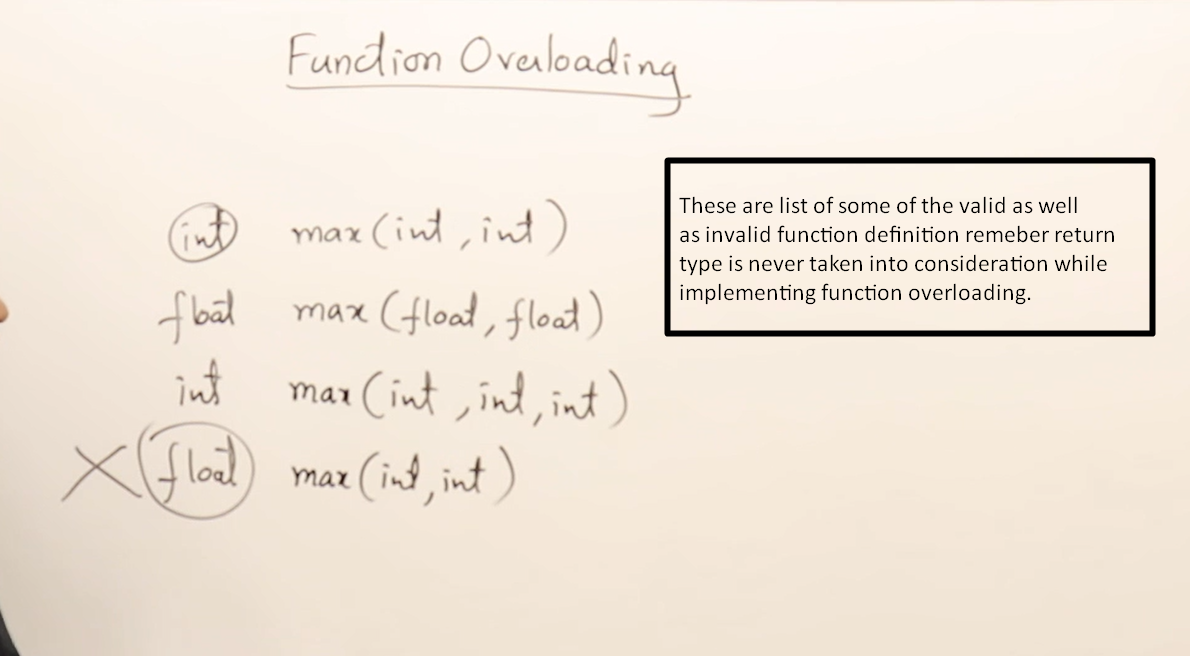 Function Overloading
int max(int, int)
float max(float, float)
int max(int, int, int)
X float max(int, int)
These are list of some of the valid as well
as invalid function definition remeber return
type is never taken into consideration while
implementing function overloading.